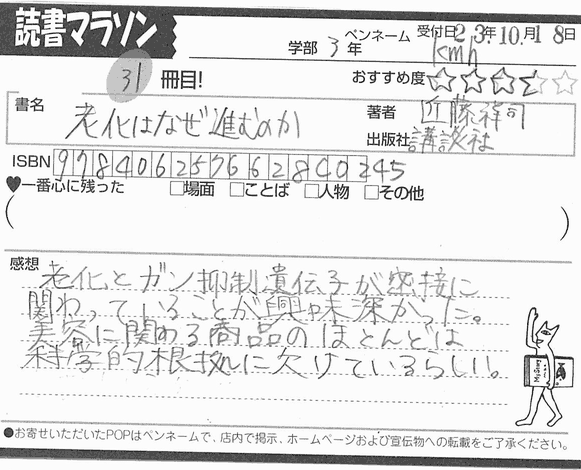 読書マラソン
学部 3年
ペンネーム kmh
受付日23年10月18日
31 冊目!
おすすめ度
書名 老化はなぜ進むのか
著者 近藤祥司
出版社 講談社
ISBN 9784062576628
♥一番心に残った □場面 □ことば □人物 □その他
( )
感想
老化とガン抑制遺伝子が密接に
関わっていることが興味深かった。
美容に関わる商品のほとんどは
科学的根拠に欠けているらしい。
●お寄せいただいたPOPはペンネームで、店内で掲示、ホームページおよび宣伝物への転載をご了承ください。